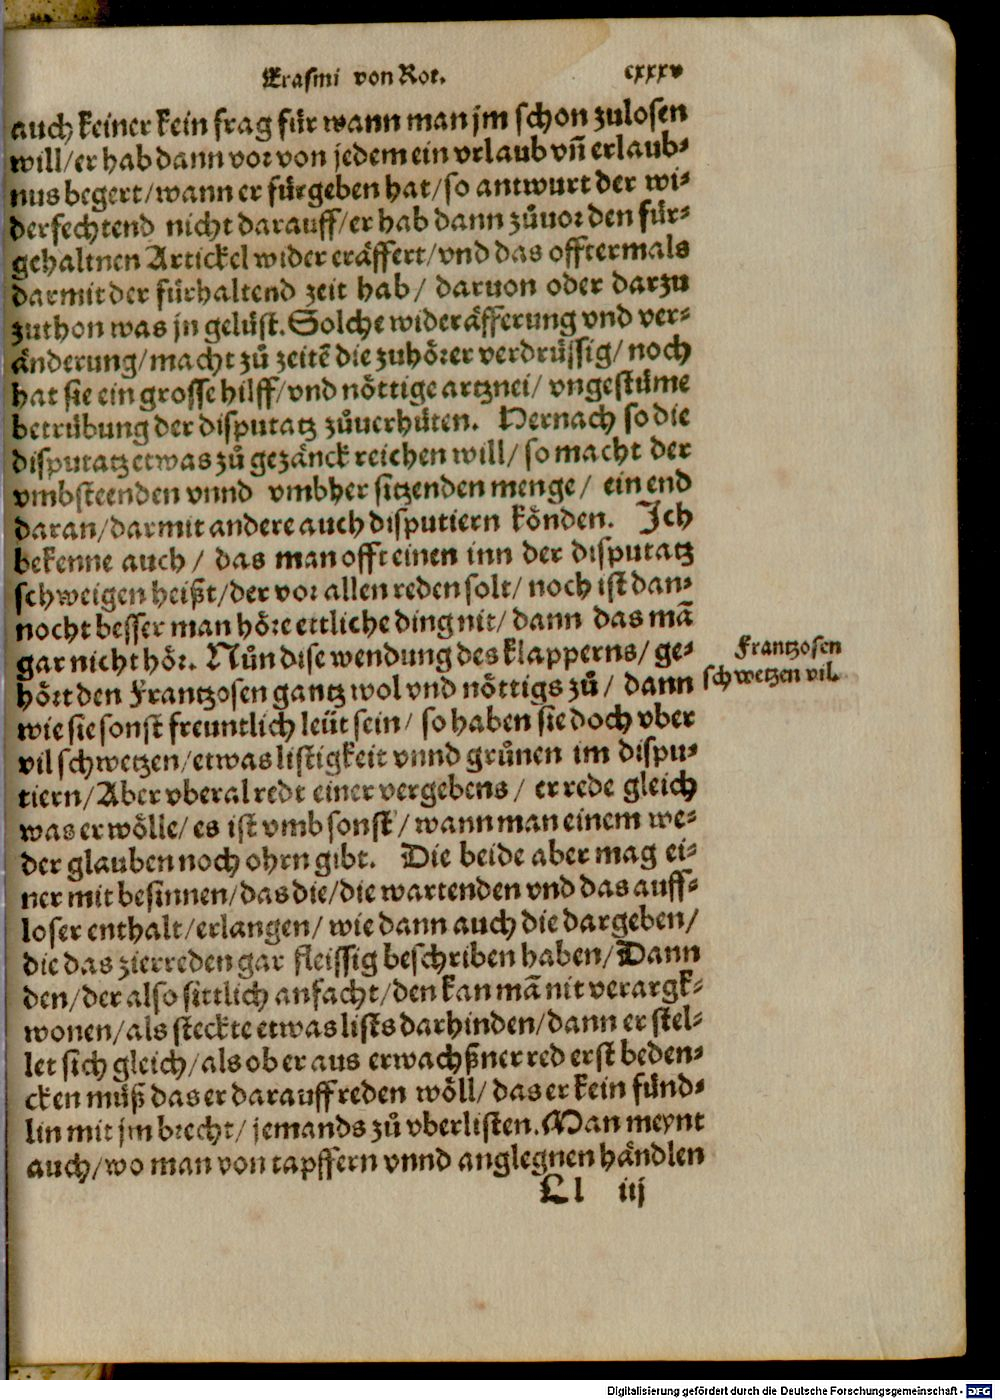 Erasmi von Rot. cxxxv
auch keiner kein frag für wann man jm schon zulosen
will/er hab dann vor von jedem ein vrlaub vñ erlaub-
nus begert/wann er fürgeben hat/so antwurt der wi-
derfechtend nicht darauff/er hab dann zůuor den für-
gehaltnen Artickel wider eräffert/vnd das offtermals
darmit der fürhaltend zeit hab/ daruon oder darzu
zuthon was jn gelüst. Solche wideräfferung vnd ver-
änderung/macht zů zeitẽ die zuhörer verdrüssig/ noch
hat sie ein grosse hilff/vnd nöttige artznei/ vngestüme
betrübung der disputatz zůuerhüten. Hernach so die
disputatz etwas zů gezänck reichen will/ so macht der
vmbsteenden vnnd vmbher sitzenden menge/ ein end
daran/darmit andere auch disputiern könden. Ich
bekenne auch/ das man offt einen inn der disputatz
schweigen heißt/der vor allen reden solt/ noch ist dan-
nocht besser man höre ettliche ding nit/ dann das mã
gar nicht hör. Nůn dise wendung des klapperns/ ge-
hört den Frantzosen gantz wol vnd nöttigs zů/ dann
wie sie sonst freuntlich leüt sein/ so haben sie doch vber
vil schwetzen/etwas listigkeit vnnd grůnen im dispu-
tiern/Aber vberal redt einer vergebens/ er rede gleich
was er wölle/ es ist vmb sonst/ wann man einem we-
der glauben noch ohrn gibt. Die beide aber mag ei-
ner mit besinnen/das die/die wartenden vnd das auff-
loser enthalt/erlangen/ wie dann auch die dargeben/
die das zierreden gar fleissig beschriben haben/Dann
den/der also sittlich anfacht/den kan mã nit verargk-
wonen/als steckte etwas lists darhinden/dann er stel-
let sich gleich/als ob er aus erwachßner red erst beden-
cken müß das er darauff reden wöll/ das er kein fünd-
lin mit jm brecht/ jemands zů vberlisten. Man meynt
auch/wo man von tapffern vnnd anglegnen händlen
Ll iij
Frantzosen
schwetzen vil.
Digitalisierung gefördert durch die Deutsche Forschungsgemeinschaft - DFG